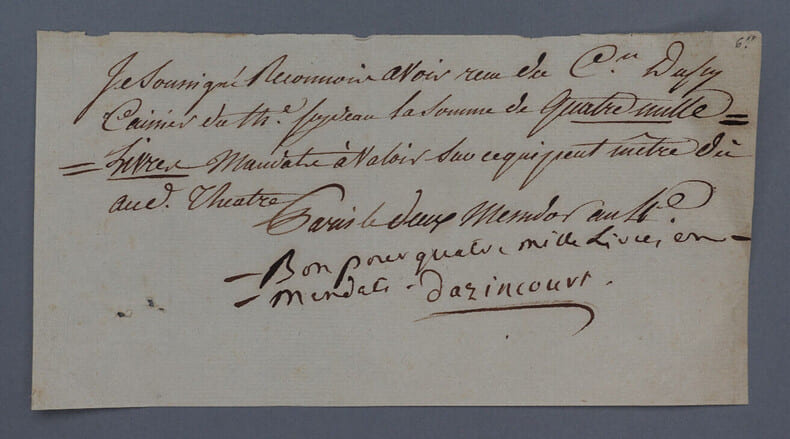 6
Je Soussigné Reconnois avoir recu du C.en Dussy
Caissier du th.e feydeau la Somme de Quatre mille =
= Livres Mandats à Valoir Sur ce qui peut m'être dù
aud. Theatre
Paris le deux Messidor an 4.e
- Bon pour quatre mille Livres en -
- mandats - dazincourt.